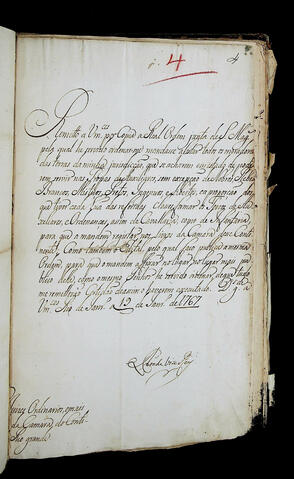 4
4
Remetto a Vm.ces por Copia a Real Ordem junta de S. Mag.e
pela qual he servido ordenarme mandasse alistar todos os moradores
das terras da minha jurisdicção, que se acharem em estado de poderem
servir nas Tropas Auxiliares, sem exceção de Nobres, Plebeos,
Brancos, Mistiços, Pretos, Ingenuos, e Libertos, e a proporção dos
que tiver cada hua das referidas Classes formar os Terços de Auxiliares,
e Ordenanças, assim de Cavallaria, como de Infantaria,
para que o mandem registar nos livros da Camara desse Continente;
Como tambem o Edital pelo qual faço publica a mesma
Ordem, para que o mandem afixar no lugar
publico delle, como o mesmo Senhor he servido ordenar, de que
me remetterão Certidão de assim o haverem executado. D.s g.e a
Vm.ces Rio de Janr.o a 12 de Janr.o de 1767
Conde
Juizes Ordinarios, e mais
da Camara do Conti-
Rio grande